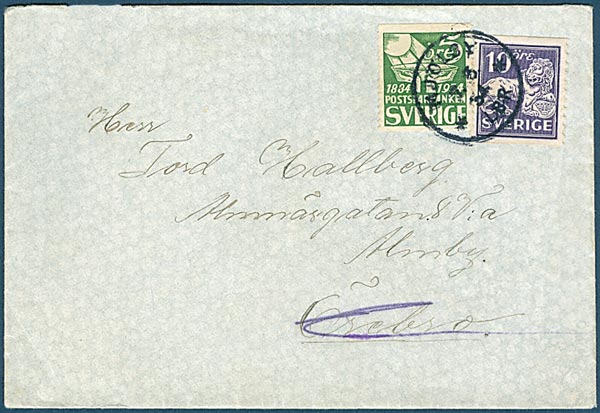 5 öre
1884 19
POSTSPARBANKEN
SVERIGE
10 öre
SVERIGE
LBR
Herr
Tord Hallberg.
V:a
Almby.
Örebro.